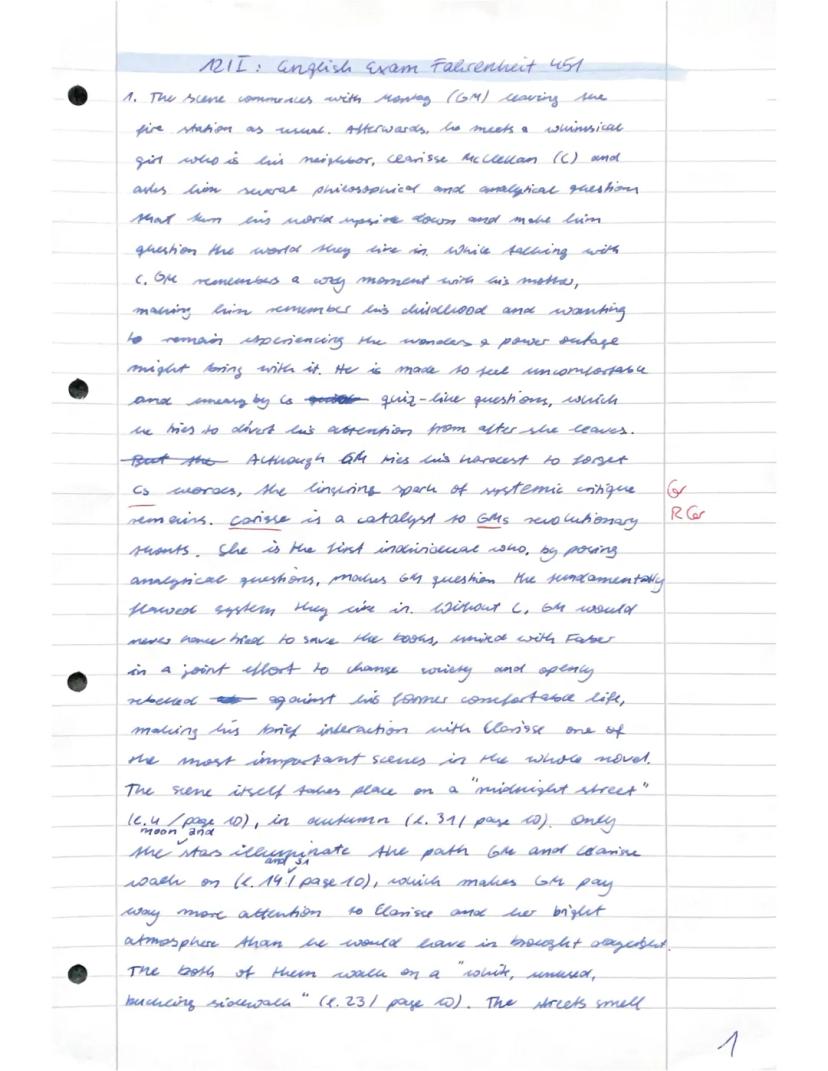 12/I: English Exam Fahrenheit 451
1. The scene commences with Montag (GM) leaving the
fire station as usual. Afterwards, he meets a whimsical
girl who is his neighbor, Clarisse McClellan (C) and
asks him several philosophical and analytical question
that turn his world upside down and make him
question the world they live in. While talking with
C, GM remembers a cozy moment with his mother,
making him remember his childhood and wanting
to remain experiencing the wonders a power outage
might bring with it. He is made to feel uncomfortable
and uneasy by Cs quiz-like questions, which
he tries to divert his attention from after she leaves.
But the Although GM tries his hardest to forget
Cs words, the lingering spark of systemic critique
Gr
remains. Carisse is a catalyst to GMs revolutionary
R Gr
thoughts. She is the first individual who, by posing
analytical questions, makes GM question the fundamentally
flawed system they live in. Without C, GM would
never have tried to save the books, united with Faber
in a joint effort to change society and openly
rebelled against his former comfortable life,
making his brief interaction with Clarisse one of
the most important scenes in the whole novel.
The scene itself takes place on a "midnight street"
(l. 4 / page 10), in autumn (l. 31 / page 10). Only
moon and
the stars illuminate the path GM and Clarisse
and 31
walk on (l. 14 / page 10), which makes GM pay
way more attention to Clarisse and her bright
atmosphere than he would have in
The both of them walk on a "white, unused,
buckling sidewalk" (l. 23 / page 10). The streets smell
1